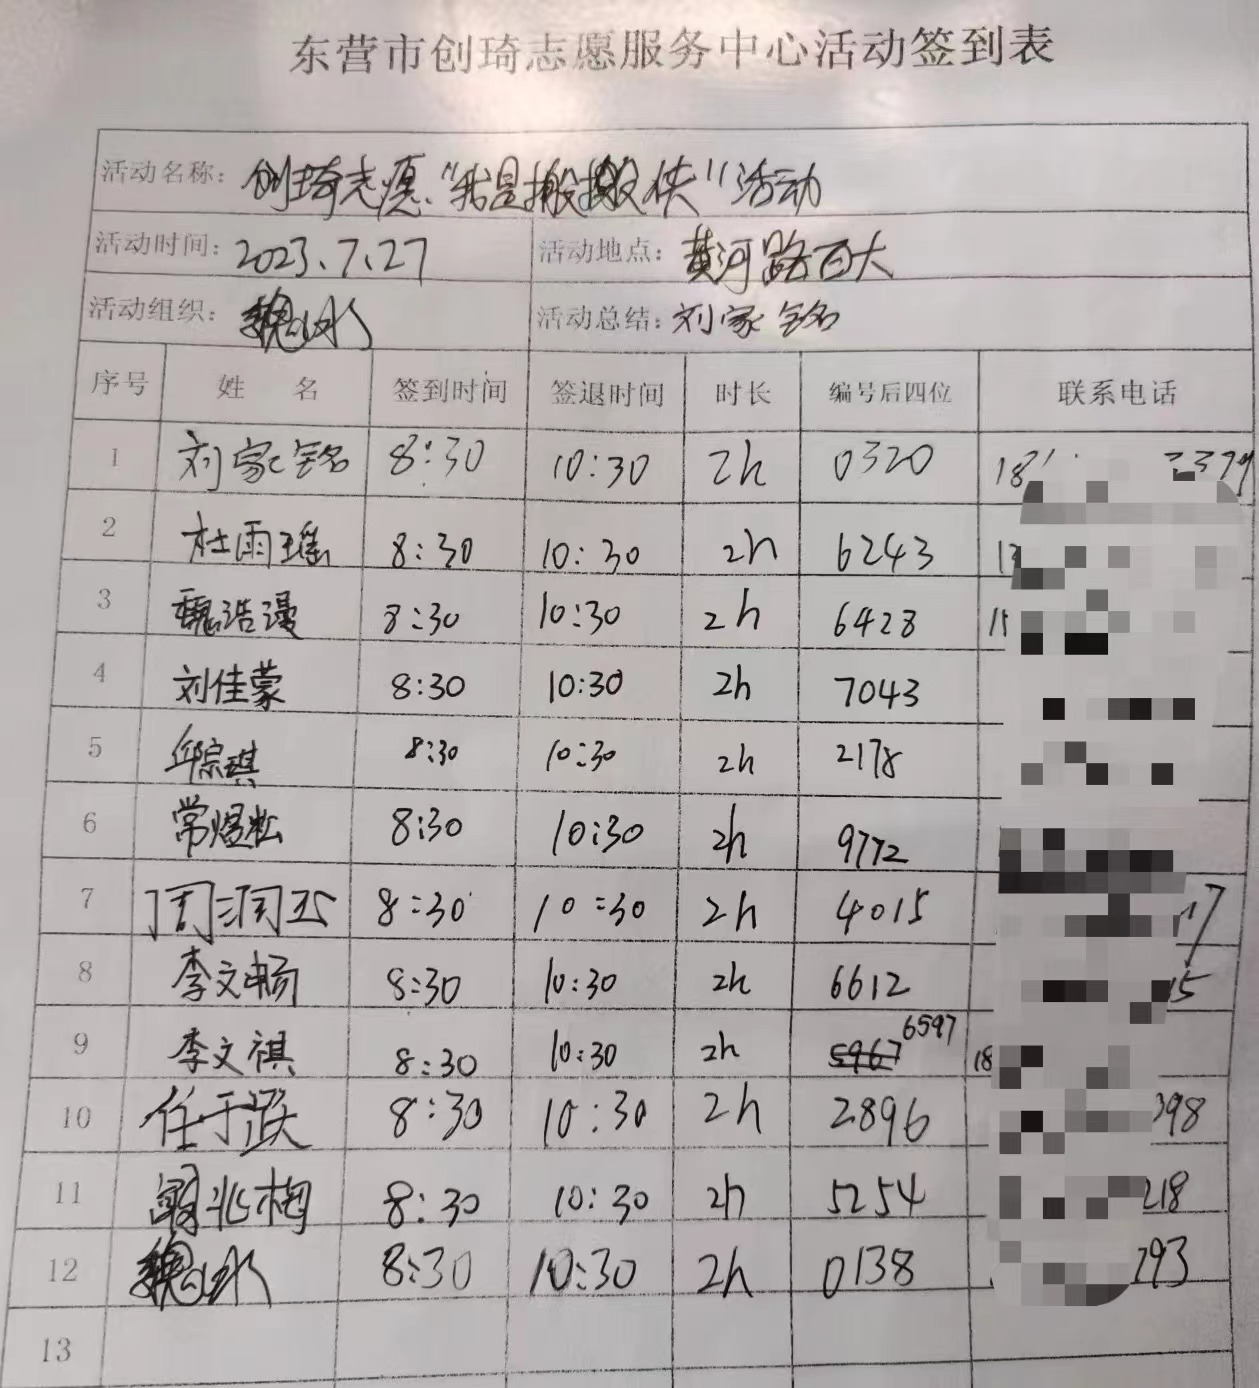 东营市创琦志愿服务中心活动签到表
活动名称: 创琦志愿"我是搬搬侠"活动
活动时间: 2023.7.27 活动地点: 黄河路百大
活动组织: 魏 活动总结: 刘家铭
序号 姓 名 签到时间 签退时间 时长 编号后四位 联系电话
1 刘家铭 8:30 10:30 2h 0320
2 杜雨瑶 8:30 10:30 2h 6243
3 魏浩漫 8:30 10:30 2h 6428
4 刘佳蒙 8:30 10:30 2h 7043
5 邱宗琪 8:30 10:30 2h 2178
6 常煜松 8:30 10:30 2h 9772
7 周润 8:30 10:30 2h 4015 17
8 李文畅 8:30 10:30 2h 6612 15
9 李文祺 8:30 10:30 2h 6597 18
10 任于 8:30 10:30 2h 2896 398
11 兆梅 8:30 10:30 2h 5254 218
12 魏 8:30 10:30 2h 0138 293
13